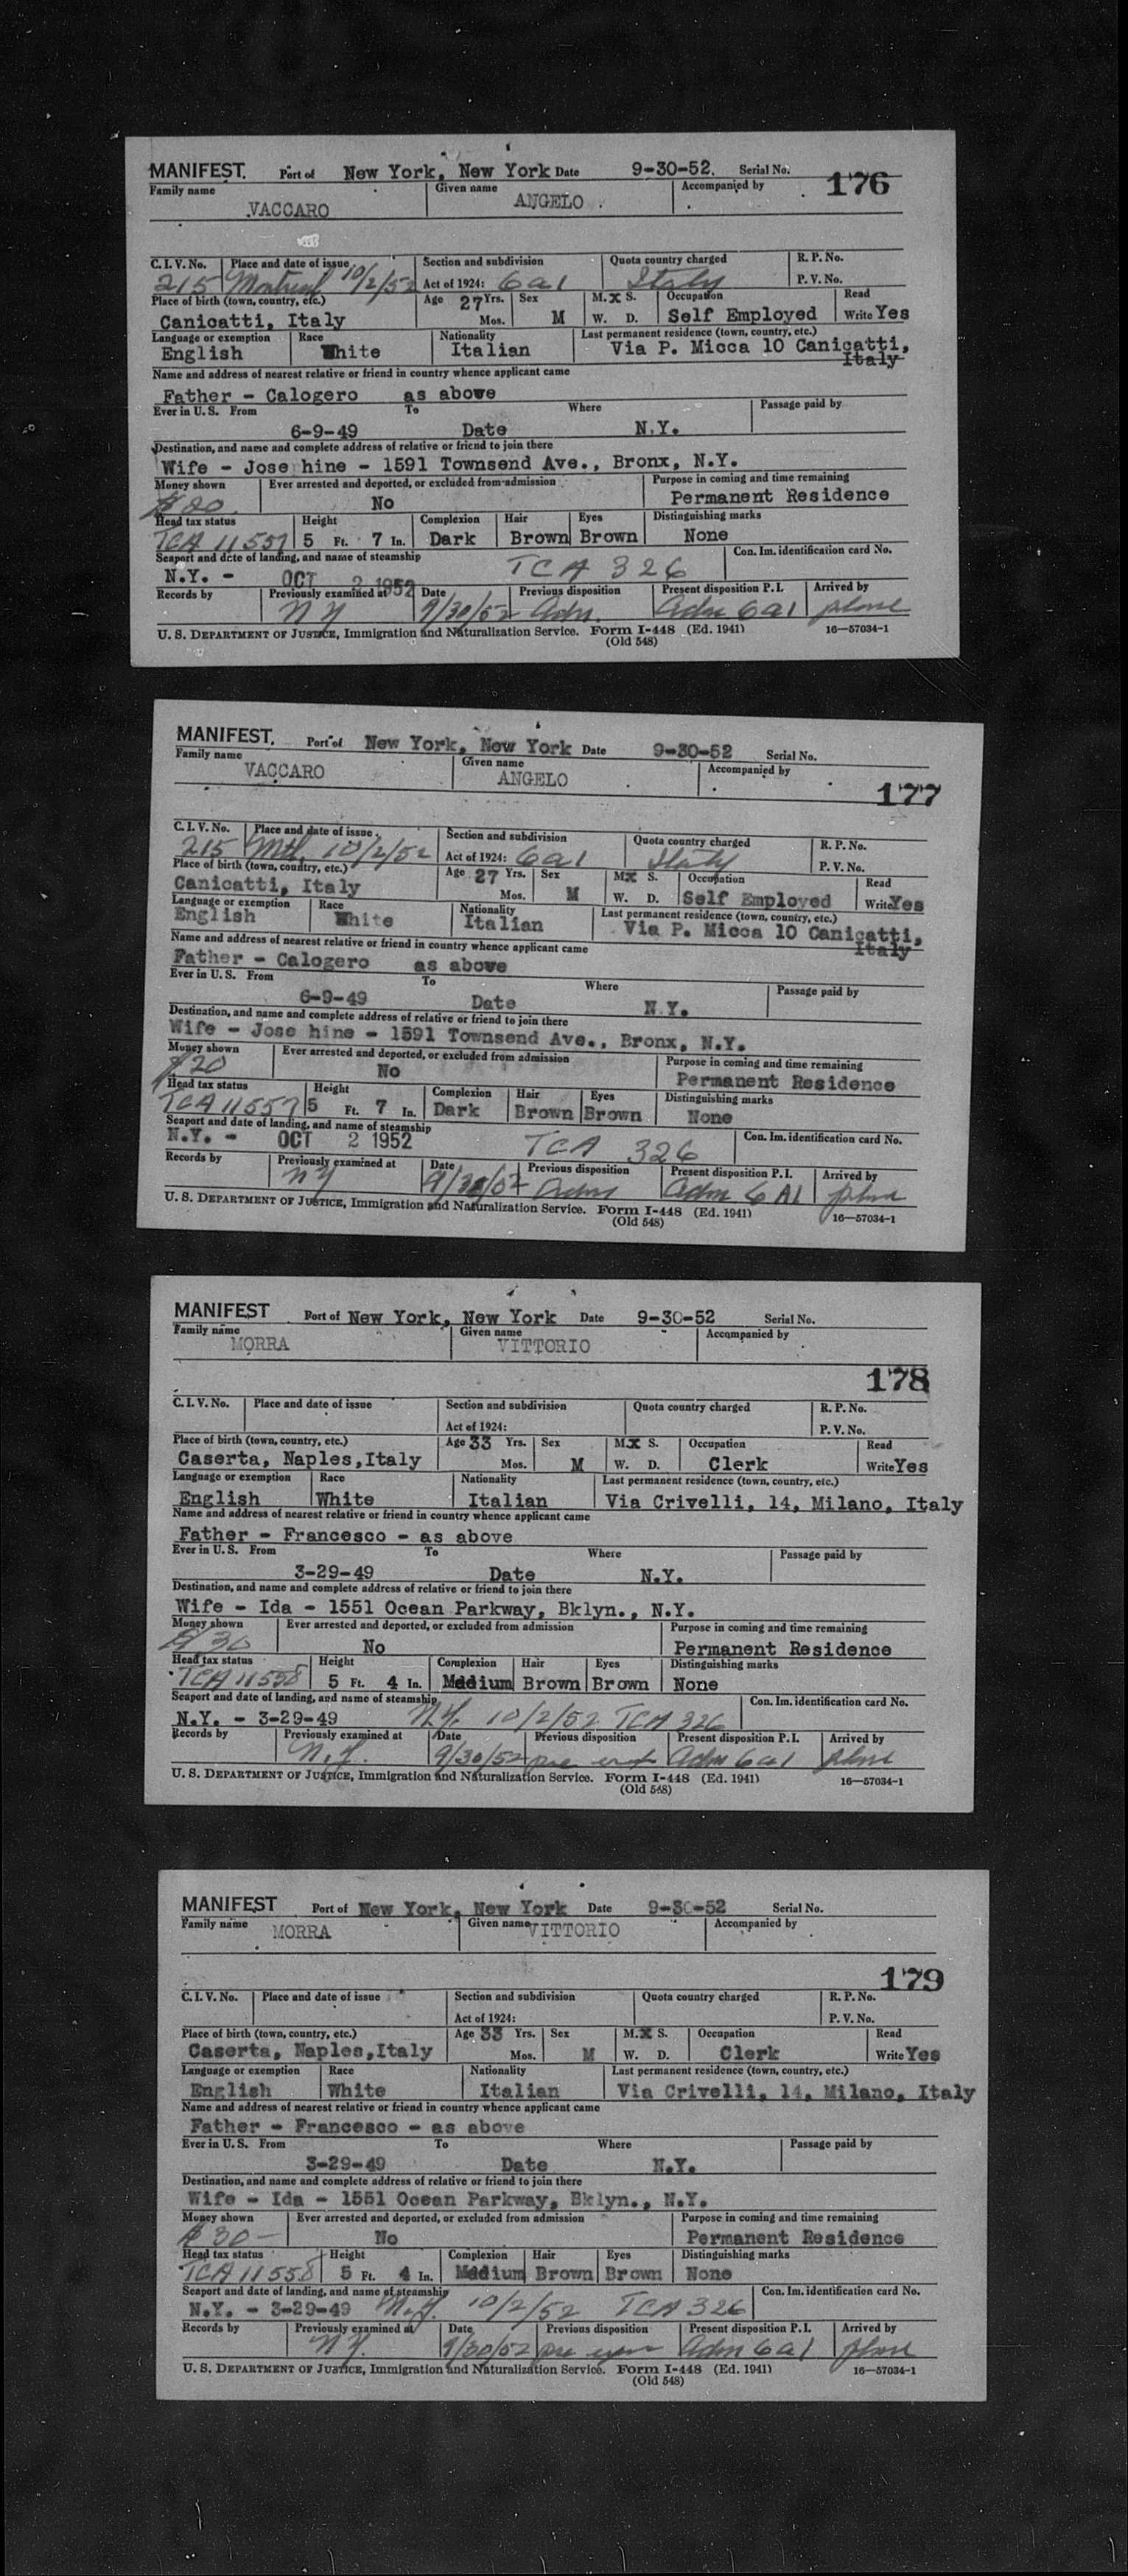 MANIFEST. Port of New York, New York Date 9-30-52. Serial No.
176
Family name Given name Accompanied by
VACCARO ANGELO
C. I. V. No. Place and date of issue Section and subdivision Quota country charged R. P. No.
215 Montreal 10/2/52 Act of 1924: 6a1 Italy P. V. No.
Place of birth (town, country, etc.) Age 27 Yrs. Sex M. X S. Occupation Read
Canicatti, Italy Mos. M W. D. Self Employed Write Yes
Language or exemption Race Nationality Last permanent residence (town, country, etc.)
English White Italian Via P. Micca 10 Canicatti,
Italy
Name and address of nearest relative or friend in country whence applicant came
Father - Calogero as above
Ever in U. S. From To Where Passage paid by
6-9-49 Date N.Y.
Destination, and name and complete address of relative or friend to join there
Wife - Jose hine - 1591 Townsend Ave., Bronx, N.Y.
Money shown Ever arrested and deported, or excluded from admission Purpose in coming and time remaining
$20. No Permanent Residence
Head tax status Height Complexion Hair Eyes Distinguishing marks
TCA 11557 5 Ft. 7 In. Dark Brown Brown None
Seaport and date of landing, and name of steamship Con. Im. identification card No.
N.Y. - OCT 2 1952 TCA 326
Records by Previously examined at Date Previous disposition Present disposition P. I. Arrived by
NY 9/30/52 Adm. Adm 6a1 plane
U. S. DEPARTMENT OF JUSTICE, Immigration and Naturalization Service. Form I-448 (Ed. 1941) 16—57034-1
(Old 548)
MANIFEST. Port of New York, New York Date 9-30-52 Serial No.
Family name Given name Accompanied by
VACCARO ANGELO
177
C. I. V. No. Place and date of issue Section and subdivision Quota country charged R. P. No.
215 Mtl. 10/2/52 Act of 1924: 6a1 Italy P. V. No.
Place of birth (town, country, etc.) Age 27 Yrs. Sex M. X S. Occupation Read
Canicatti, Italy Mos. M W. D. Self Employed Write Yes
Language or exemption Race Nationality Last permanent residence (town, country, etc.)
English White Italian Via P. Micca 10 Canicatti,
Italy
Name and address of nearest relative or friend in country whence applicant came
Father - Calogero as above
Ever in U. S. From To Where Passage paid by
6-9-49 Date N.Y.
Destination, and name and complete address of relative or friend to join there
Wife - Jose hine - 1591 Townsend Ave., Bronx, N.Y.
Money shown Ever arrested and deported, or excluded from admission Purpose in coming and time remaining
$20 No Permanent Residence
Head tax status Height Complexion Hair Eyes Distinguishing marks
TCA 11557 5 Ft. 7 In. Dark Brown Brown None
Seaport and date of landing, and name of steamship Con. Im. identification card No.
N.Y. - OCT 2 1952 TCA 326
Records by Previously examined at Date Previous disposition Present disposition P. I. Arrived by
NY 9/30/52 Adm Adm 6 A1 plane
U. S. DEPARTMENT OF JUSTICE, Immigration and Naturalization Service. Form I-448 (Ed. 1941) 16—57034-1
(Old 548)
MANIFEST Port of New York, New York Date 9-30-52 Serial No.
Family name Given name Accompanied by
MORRA VITTORIO
178
C. I. V. No. Place and date of issue Section and subdivision Quota country charged R. P. No.
Act of 1924: P. V. No.
Place of birth (town, country, etc.) Age 33 Yrs. Sex M. X S. Occupation Read
Caserta, Naples,Italy Mos. M W. D. Clerk Write Yes
Language or exemption Race Nationality Last permanent residence (town, country, etc.)
English White Italian Via Crivelli, 14, Milano, Italy
Name and address of nearest relative or friend in country whence applicant came
Father - Francesco - as above
Ever in U. S. From To Where Passage paid by
3-29-49 Date N.Y.
Destination, and name and complete address of relative or friend to join there
Wife - Ida - 1551 Ocean Parkway, Bklyn., N.Y.
Money shown Ever arrested and deported, or excluded from admission Purpose in coming and time remaining
$30 No Permanent Residence
Head tax status Height Complexion Hair Eyes Distinguishing marks
TCA 11558 5 Ft. 4 In. Medium Brown Brown None
Seaport and date of landing, and name of steamship Con. Im. identification card No.
N.Y. - 3-29-49 N.Y. 10/2/52 TCA 326
Records by Previously examined at Date Previous disposition Present disposition P. I. Arrived by
N.Y. 9/30/52 pre Adm 6a1 plane
U. S. DEPARTMENT OF JUSTICE, Immigration and Naturalization Service. Form I-448 (Ed. 1941) 16—57034-1
(Old 548)
MANIFEST Port of New York, New York Date 9-30-52 Serial No.
Family name Given name Accompanied by
MORRA VITTORIO
179
C. I. V. No. Place and date of issue Section and subdivision Quota country charged R. P. No.
Act of 1924: P. V. No.
Place of birth (town, country, etc.) Age 33 Yrs. Sex M. X S. Occupation Read
Caserta, Naples,Italy Mos. M W. D. Clerk Write Yes
Language or exemption Race Nationality Last permanent residence (town, country, etc.)
English White Italian Via Crivelli, 14, Milano, Italy
Name and address of nearest relative or friend in country whence applicant came
Father - Francesco - as above
Ever in U. S. From To Where Passage paid by
3-29-49 Date N.Y.
Destination, and name and complete address of relative or friend to join there
Wife - Ida - 1551 Ocean Parkway, Bklyn., N.Y.
Money shown Ever arrested and deported, or excluded from admission Purpose in coming and time remaining
$30- No Permanent Residence
Head tax status Height Complexion Hair Eyes Distinguishing marks
TCA 11558 5 Ft. 4 In. Medium Brown Brown None
Seaport and date of landing, and name of steamship Con. Im. identification card No.
N.Y. - 3-29-49 N.Y. 10/2/52 TCA 326
Records by Previously examined at Date Previous disposition Present disposition P. I. Arrived by
N.Y. 9/30/52 pre Adm 6a1 plane
U. S. DEPARTMENT OF JUSTICE, Immigration and Naturalization Service. Form I-448 (Ed. 1941) 16—57034-1
(Old 548)